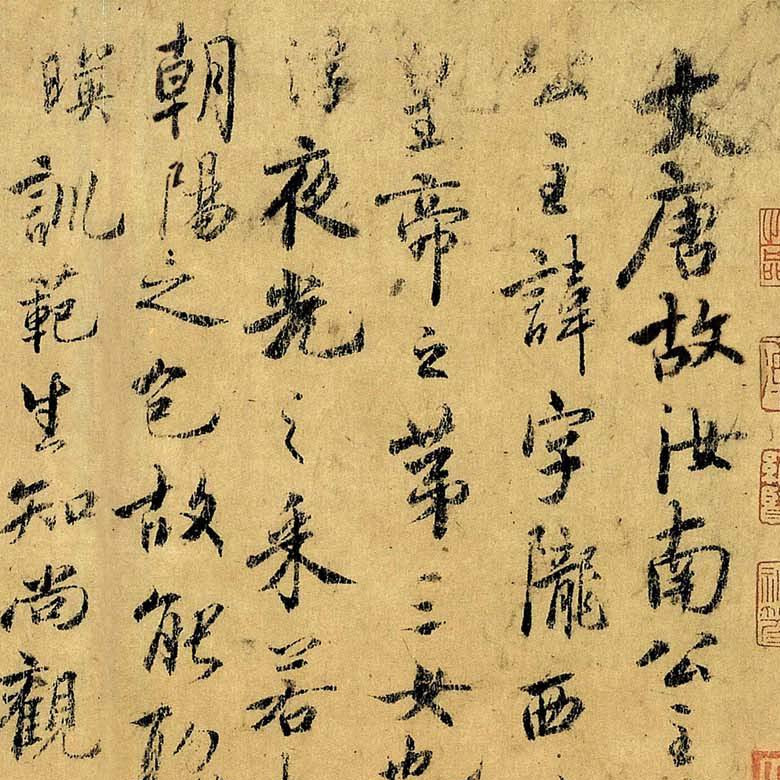 大唐故汝南公主
公主諱字隴西
皇帝之第三女也
浮夜光之采若
朝陽之色故能
暎訓範生知尚觀